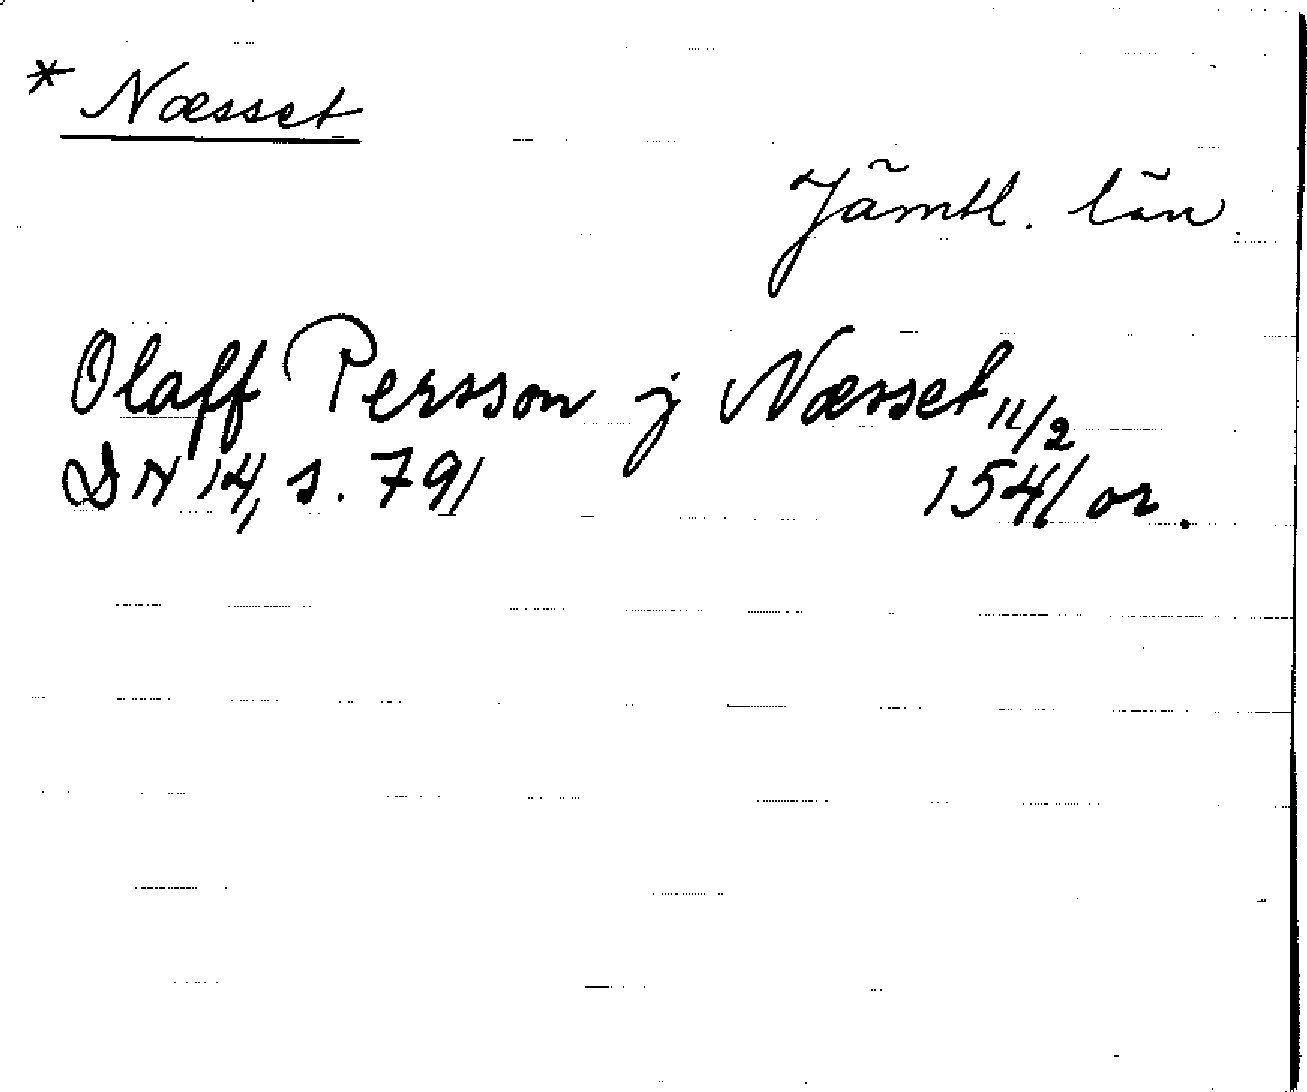 * Næsset
Jämtl. län
Olaff Persson j Næsset 11/2
DN 14, s. 791 1541 or.